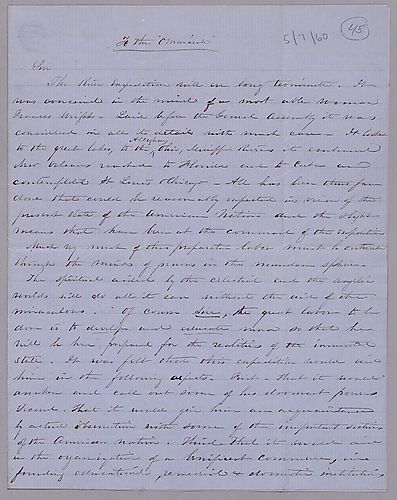 5/7/60 45
To the "Omniarch"
Sir
The River Expedition will ere long terminate. It
was conceived in the mind of a most able woman
Frances Wright - Laid before the General Assembly it was
considered in all its details with much care - It looked
Allegheny
to the great lakes, to the Ohio, Mississippi Rivers it embraced
New Orleans reached to Florida and to Cuba and
contemplated St Louis & Chicago - All has been thus far
done that could be reasonably expected in view of the
present state of the American Nation and the slight
means that have been at the command of the expedition
Much of this preparative labor must be
through the minds of persons in the mundane sphere.
The spiritual aided by the celestial and the angelic
worlds will do all it can without the aid of the
miraculous. Of course Sir, the great labor to be
done is to develop and educate man so that he
will be here, prepared for the realities of the immortal
state. It was felt that this expedition would aid
him in the following aspects. First. that it would
awaken and call out some of his dormant powers
Second. That it would give him an acquaintance
by actual observation with some of the important sections
of the American nation. Third. that it would aid
in the organization of a beneficent commerce, in
founding educational, & domestic institutions